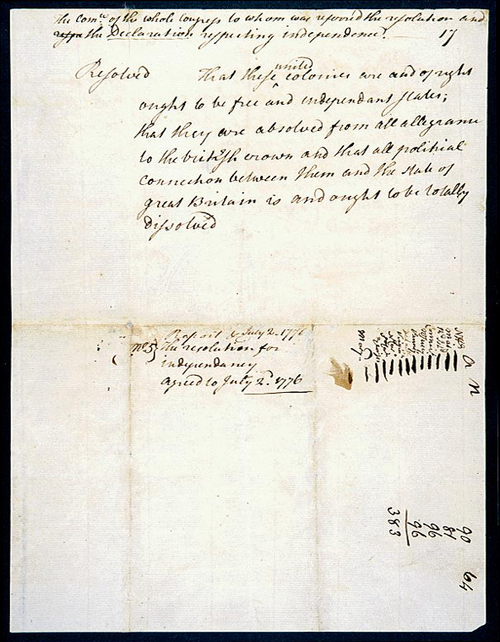 The Comee of the whole Congress to whom was referred the resolution and
the Declaration respecting independence. —
17
Resolved That these united colonies are and of right
ought to be free and independant states;
that they are absolved from all allegiance
to the british crown and that all political
connection between them and the state of
great Britain is and ought to be totally
dissolved
Report July 2. 1776
No 5 The resolution for
independancy
agreed to July 2d. 1776
A N
90
81
96
96
383
64